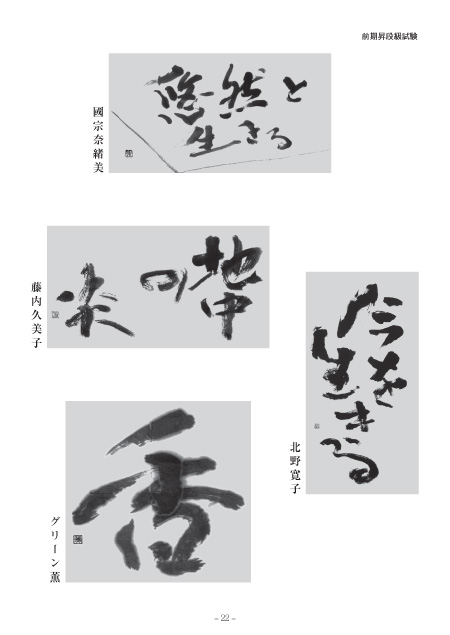 前期昇段級試験
悠然と
生きる
國宗奈緒美
地中
の
藤内久美子
今を
生きる
北野寛子
香
グリーン薫
– 22 –